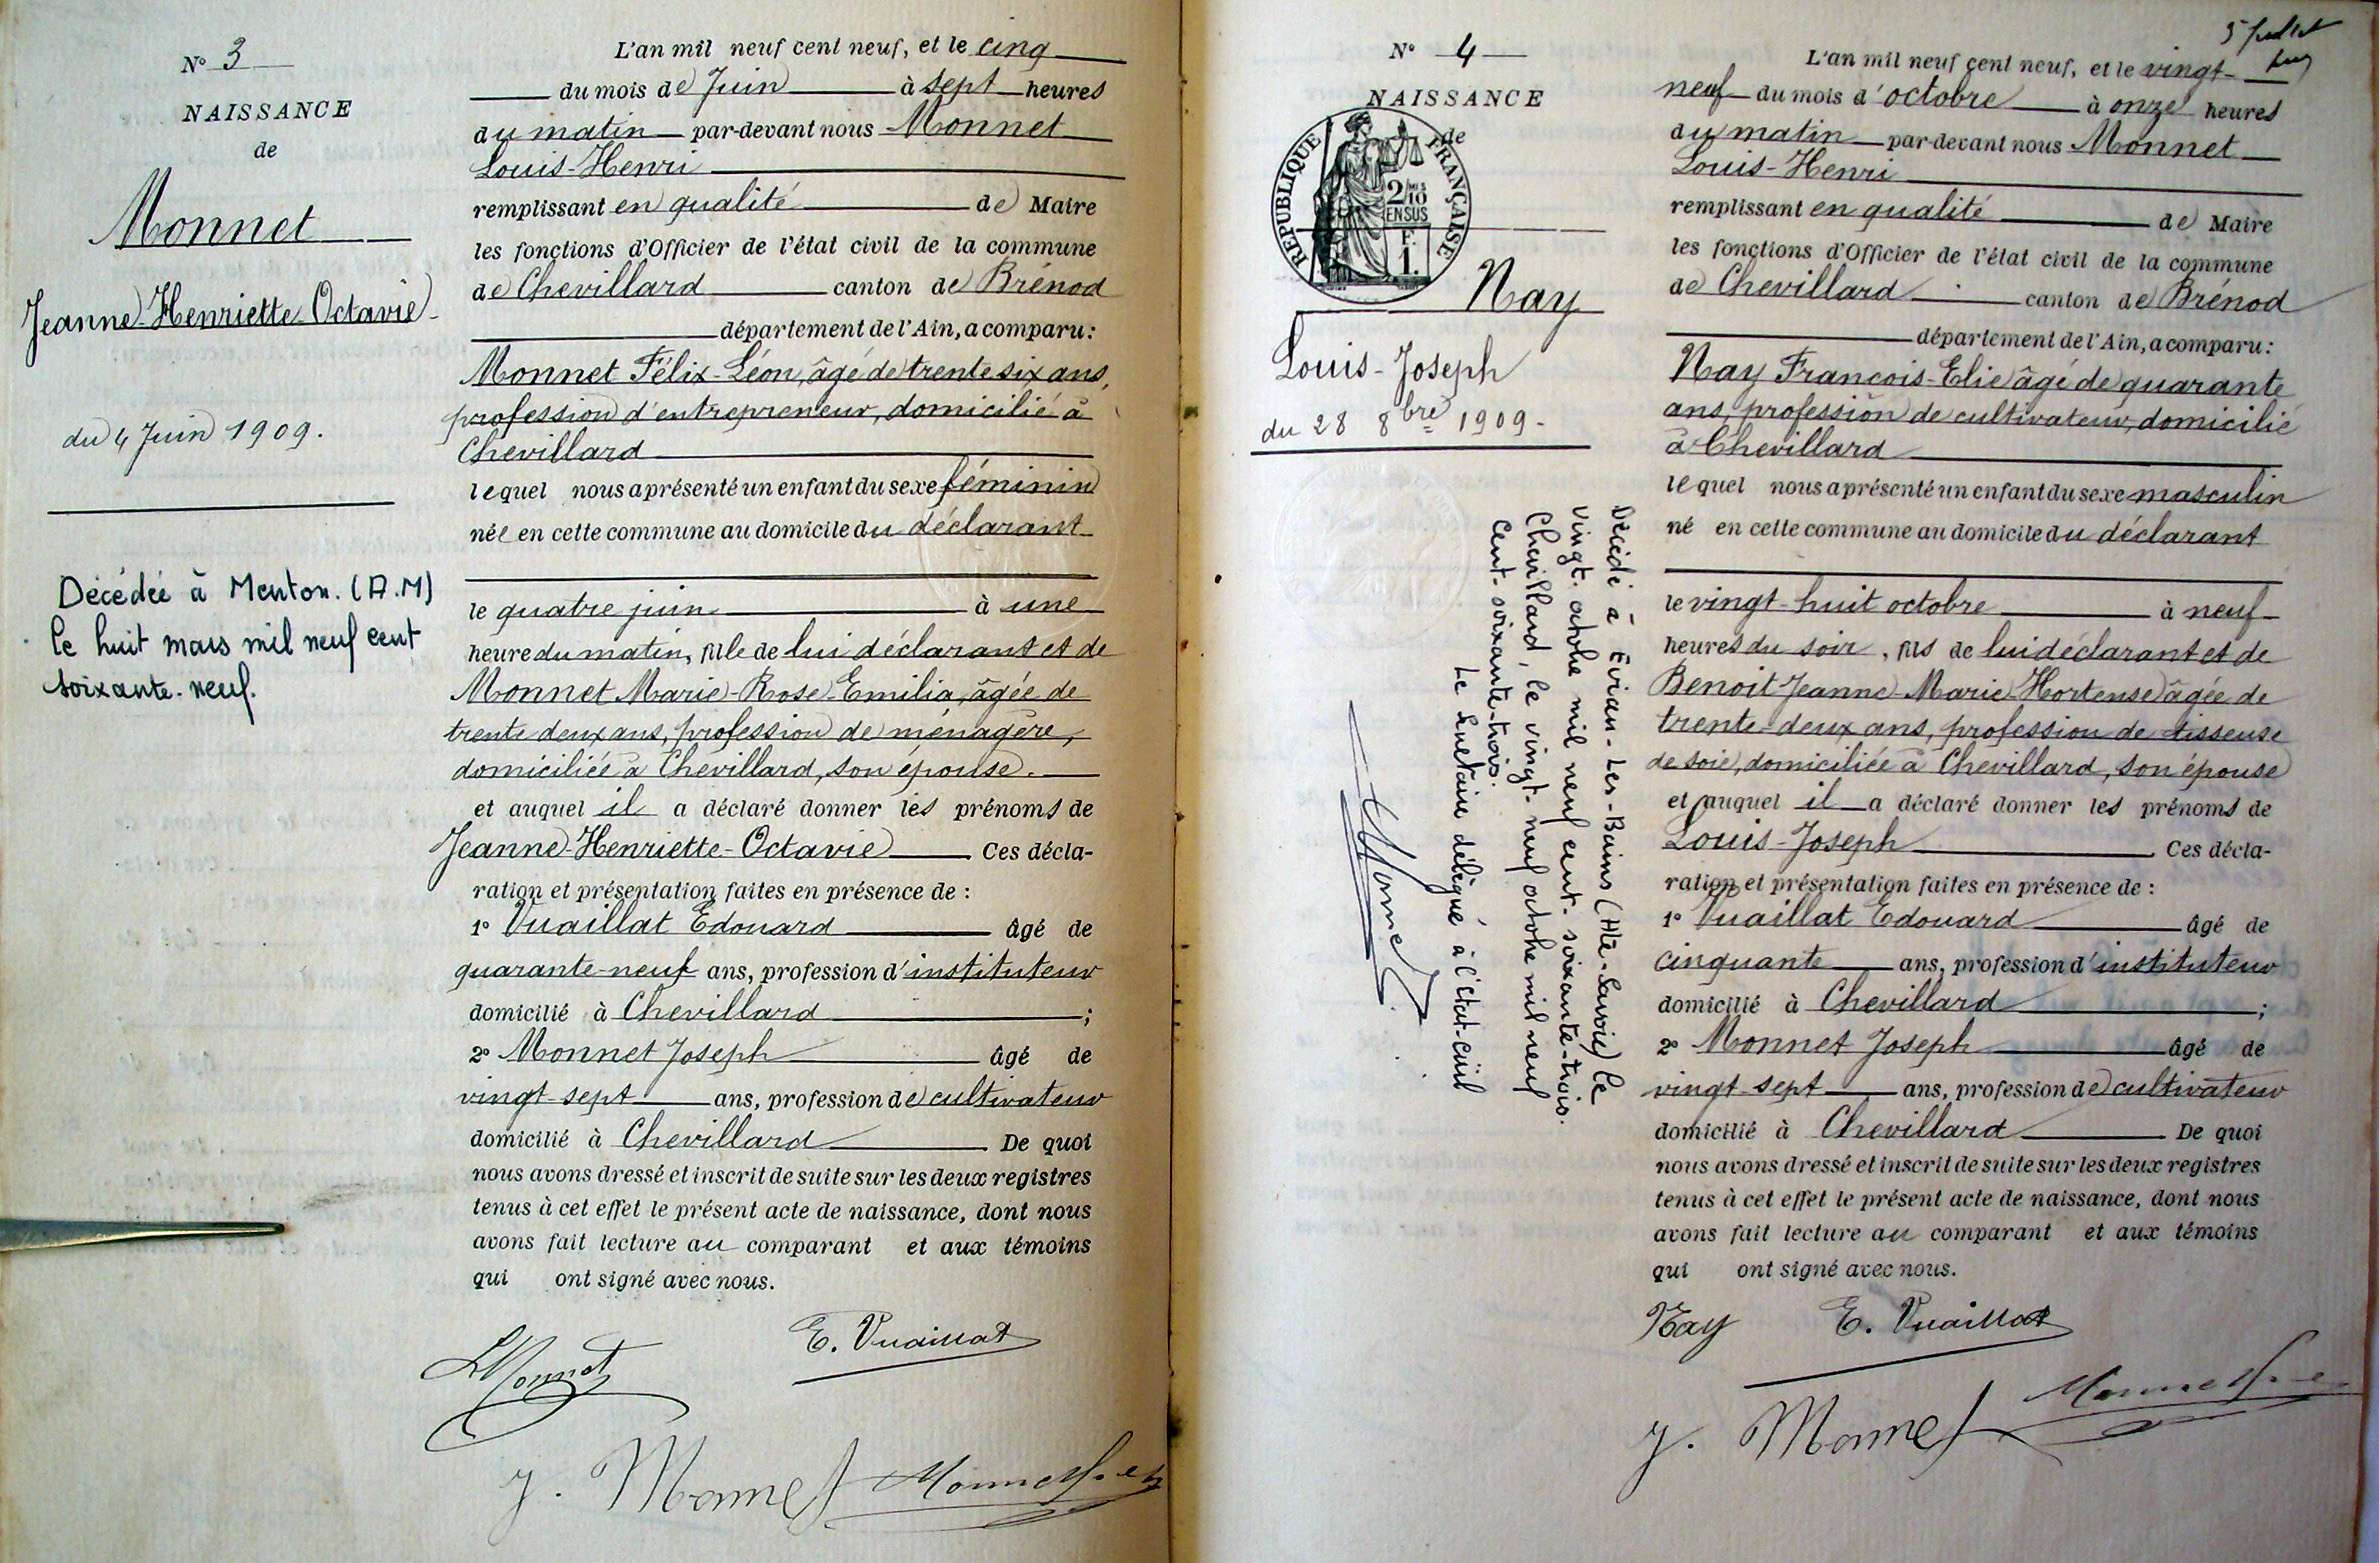 N° 3
NAISSANCE
de
Monnet
Jeanne-Henriette-Octavie
du 4 Juin 1909.
Décédée à Menton. (A.M)
le huit mars mil neuf cent
soixante-neuf.
L'an mil neuf cent neuf, et le cinq
du mois de Juin à sept heures
du matin par-devant nous Monnet
Louis-Henri
remplissant en qualité de Maire
les fonctions d'Officier de l'état civil de la commune
de Chevillard canton de Brénod
département de l'Ain, a comparu:
Monnet Félix-Léon, âgé de trente six ans,
profession d'entrepreneur, domicilié à
Chevillard
lequel nous a présenté un enfant du sexe féminin
née en cette commune au domicile du déclarant
le quatre juin à une
heure du matin, fille de lui déclarant et de
Monnet Marie-Rose-Emilia, âgée de
trente deux ans, profession de ménagère,
domiciliée à Chevillard, son épouse.
et auquel il a déclaré donner les prénoms de
Jeanne-Henriette-Octavie Ces décla-
ration et présentation faites en présence de :
1° Vuaillat Edouard âgé de
quarante-neuf ans, profession d'instituteur
domicilié à Chevillard ;
2° Monnet Joseph âgé de
vingt-sept ans, profession de cultivateur
domicilié à Chevillard De quoi
nous avons dressé et inscrit de suite sur les deux registres
tenus à cet effet le présent acte de naissance, dont nous
avons fait lecture au comparant et aux témoins
qui ont signé avec nous.
LMonnet E. Vuaillat
J. Monnet Monnet
N° 4
NAISSANCE
de
RÉPUBLIQUE FRANÇAISE
2/10
EN SUS
F.
1.
Nay
Louis-Joseph
du 28 8bre 1909.
Décédé à Evian-Les-Bains (Hte-Savoie) le
vingt-octobre mil neuf cent-soixante-trois.
Chevillard, le vingt-neuf octobre mil neuf
cent-soixante-trois.
Le Secrétaire délégué à l'état-civil
Monnet
5 juillet
L'an mil neuf cent neuf, et le vingt-
neuf du mois d'octobre à onze heures
du matin par-devant nous Monnet
Louis-Henri
remplissant en qualité de Maire
les fonctions d'Officier de l'état civil de la commune
de Chevillard canton de Brénod
département de l'Ain, a comparu:
Nay François-Elie âgé de quarante
ans, profession de cultivateur, domicilié
à Chevillard
lequel nous a présenté un enfant du sexe masculin
né en cette commune au domicile du déclarant
le vingt-huit octobre à neuf
heures du soir, fils de lui déclarant et de
Benoit Jeanne-Marie-Hortense âgée de
trente-deux ans, profession de tisseuse
de soie, domiciliée à Chevillard, son épouse
et auquel il a déclaré donner les prénoms de
Louis-Joseph Ces décla-
ration et présentation faites en présence de :
1° Vuaillat Edouard âgé de
cinquante ans, profession d'instituteur
domicilié à Chevillard ;
2° Monnet Joseph âgé de
vingt-sept ans, profession de cultivateur
domicilié à Chevillard De quoi
nous avons dressé et inscrit de suite sur les deux registres
tenus à cet effet le présent acte de naissance, dont nous
avons fait lecture au comparant et aux témoins
qui ont signé avec nous.
Nay E. Vuaillat
J. Monnet Monnet